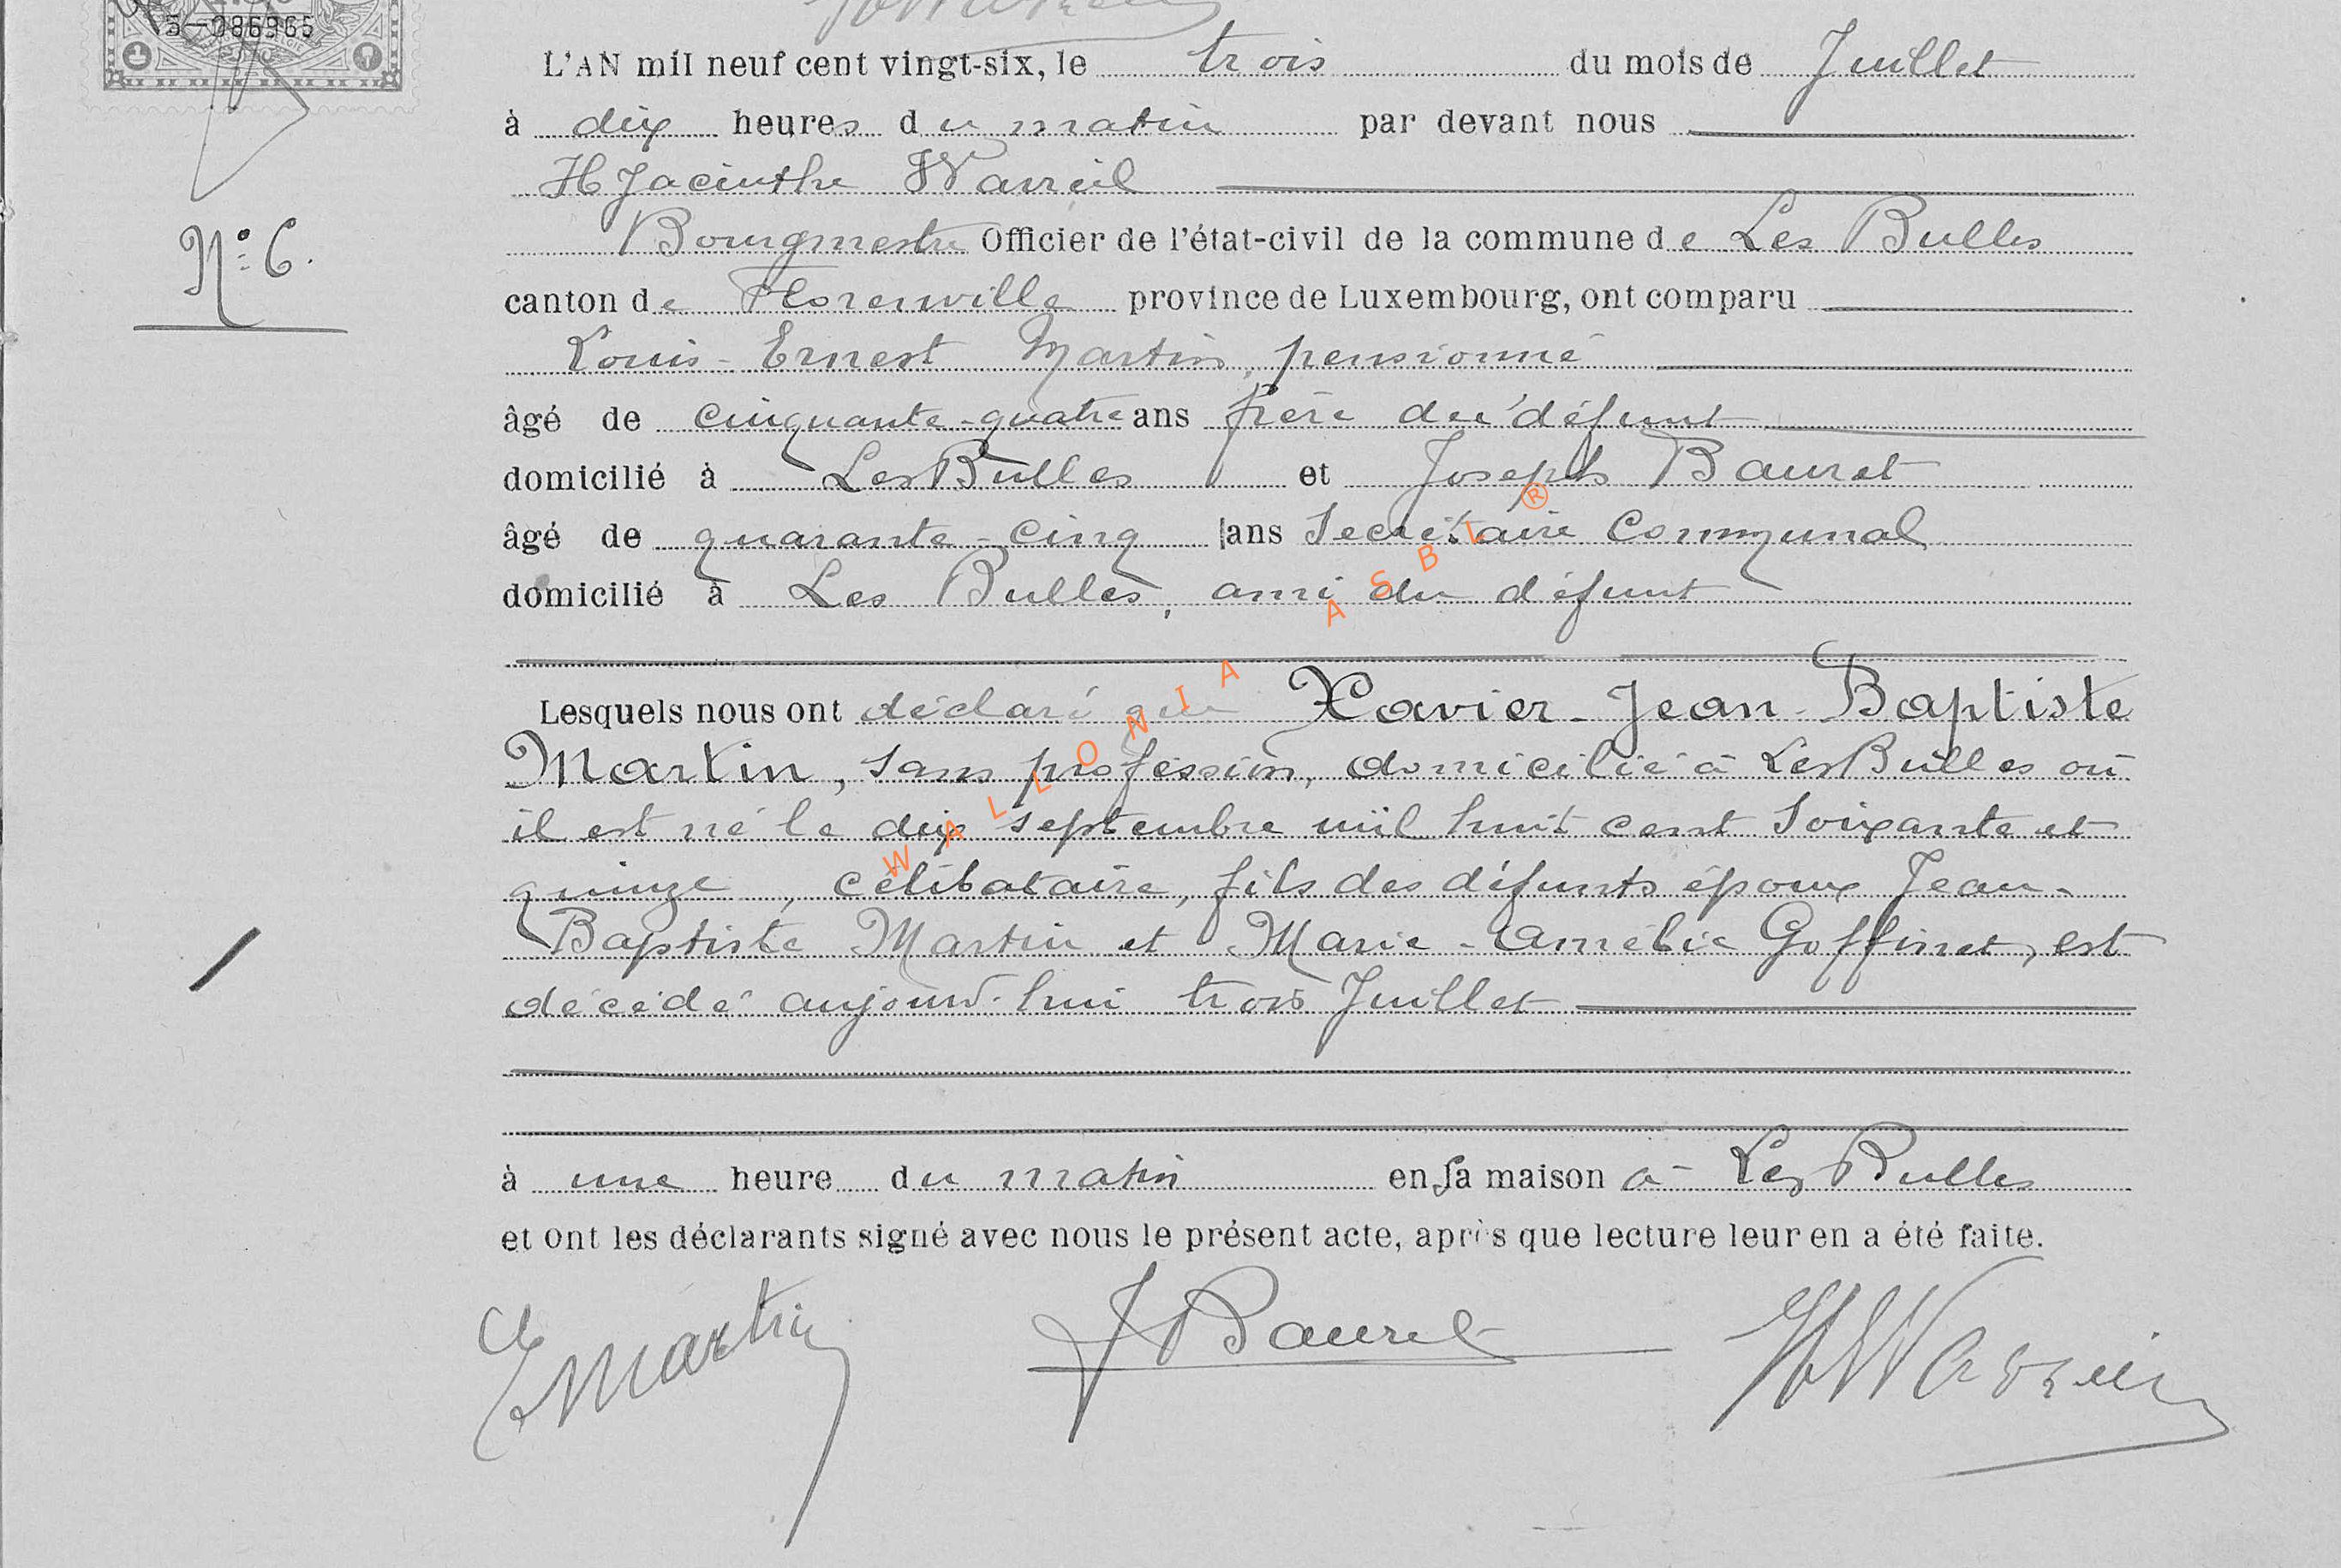 5-086965
L'AN mil neuf cent vingt-six, le trois du mois de Juillet
à dix heures du matin par devant nous
Hyacinthe
Bourgmestre Officier de l'état-civil de la commune de Les Bulles
N° 6.
canton de Florenville province de Luxembourg, ont comparu
Louis-Ernest Martin, pensionné
âgé de cinquante-quatre ans frère du défunt
domicilié à Les Bulles et Joseph Bauret
âgé de quarante-cinq ans Secrétaire Communal
domicilié à Les Bulles, ami du défunt
Lesquels nous ont déclaré que Xavier-Jean-Baptiste
Martin, sans profession, domicilié à Les Bulles où
il est né le dix septembre mil huit cent soixante et
quinze, célibataire, fils des défunts époux Jean-
Baptiste Martin et Marie-Amélie Goffinet, est
décédé aujourd'hui trois Juillet
à une heure du matin en sa maison à Les Bulles
et ont les déclarants signé avec nous le présent acte, après que lecture leur en a été faite.
E Martin J Bauret
WALLONIA ASBL ®